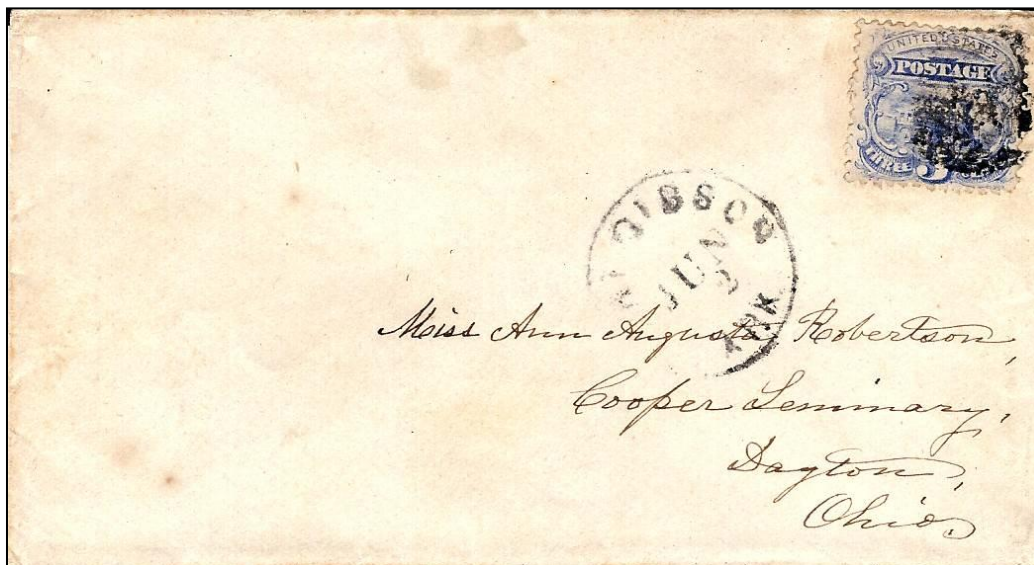 UNITED STATES
POSTAGE
THREE 3
GIBSON
JUN
ARK
Miss Ann Augusta Robertson,
Cooper Seminary,
Dayton,
Ohio